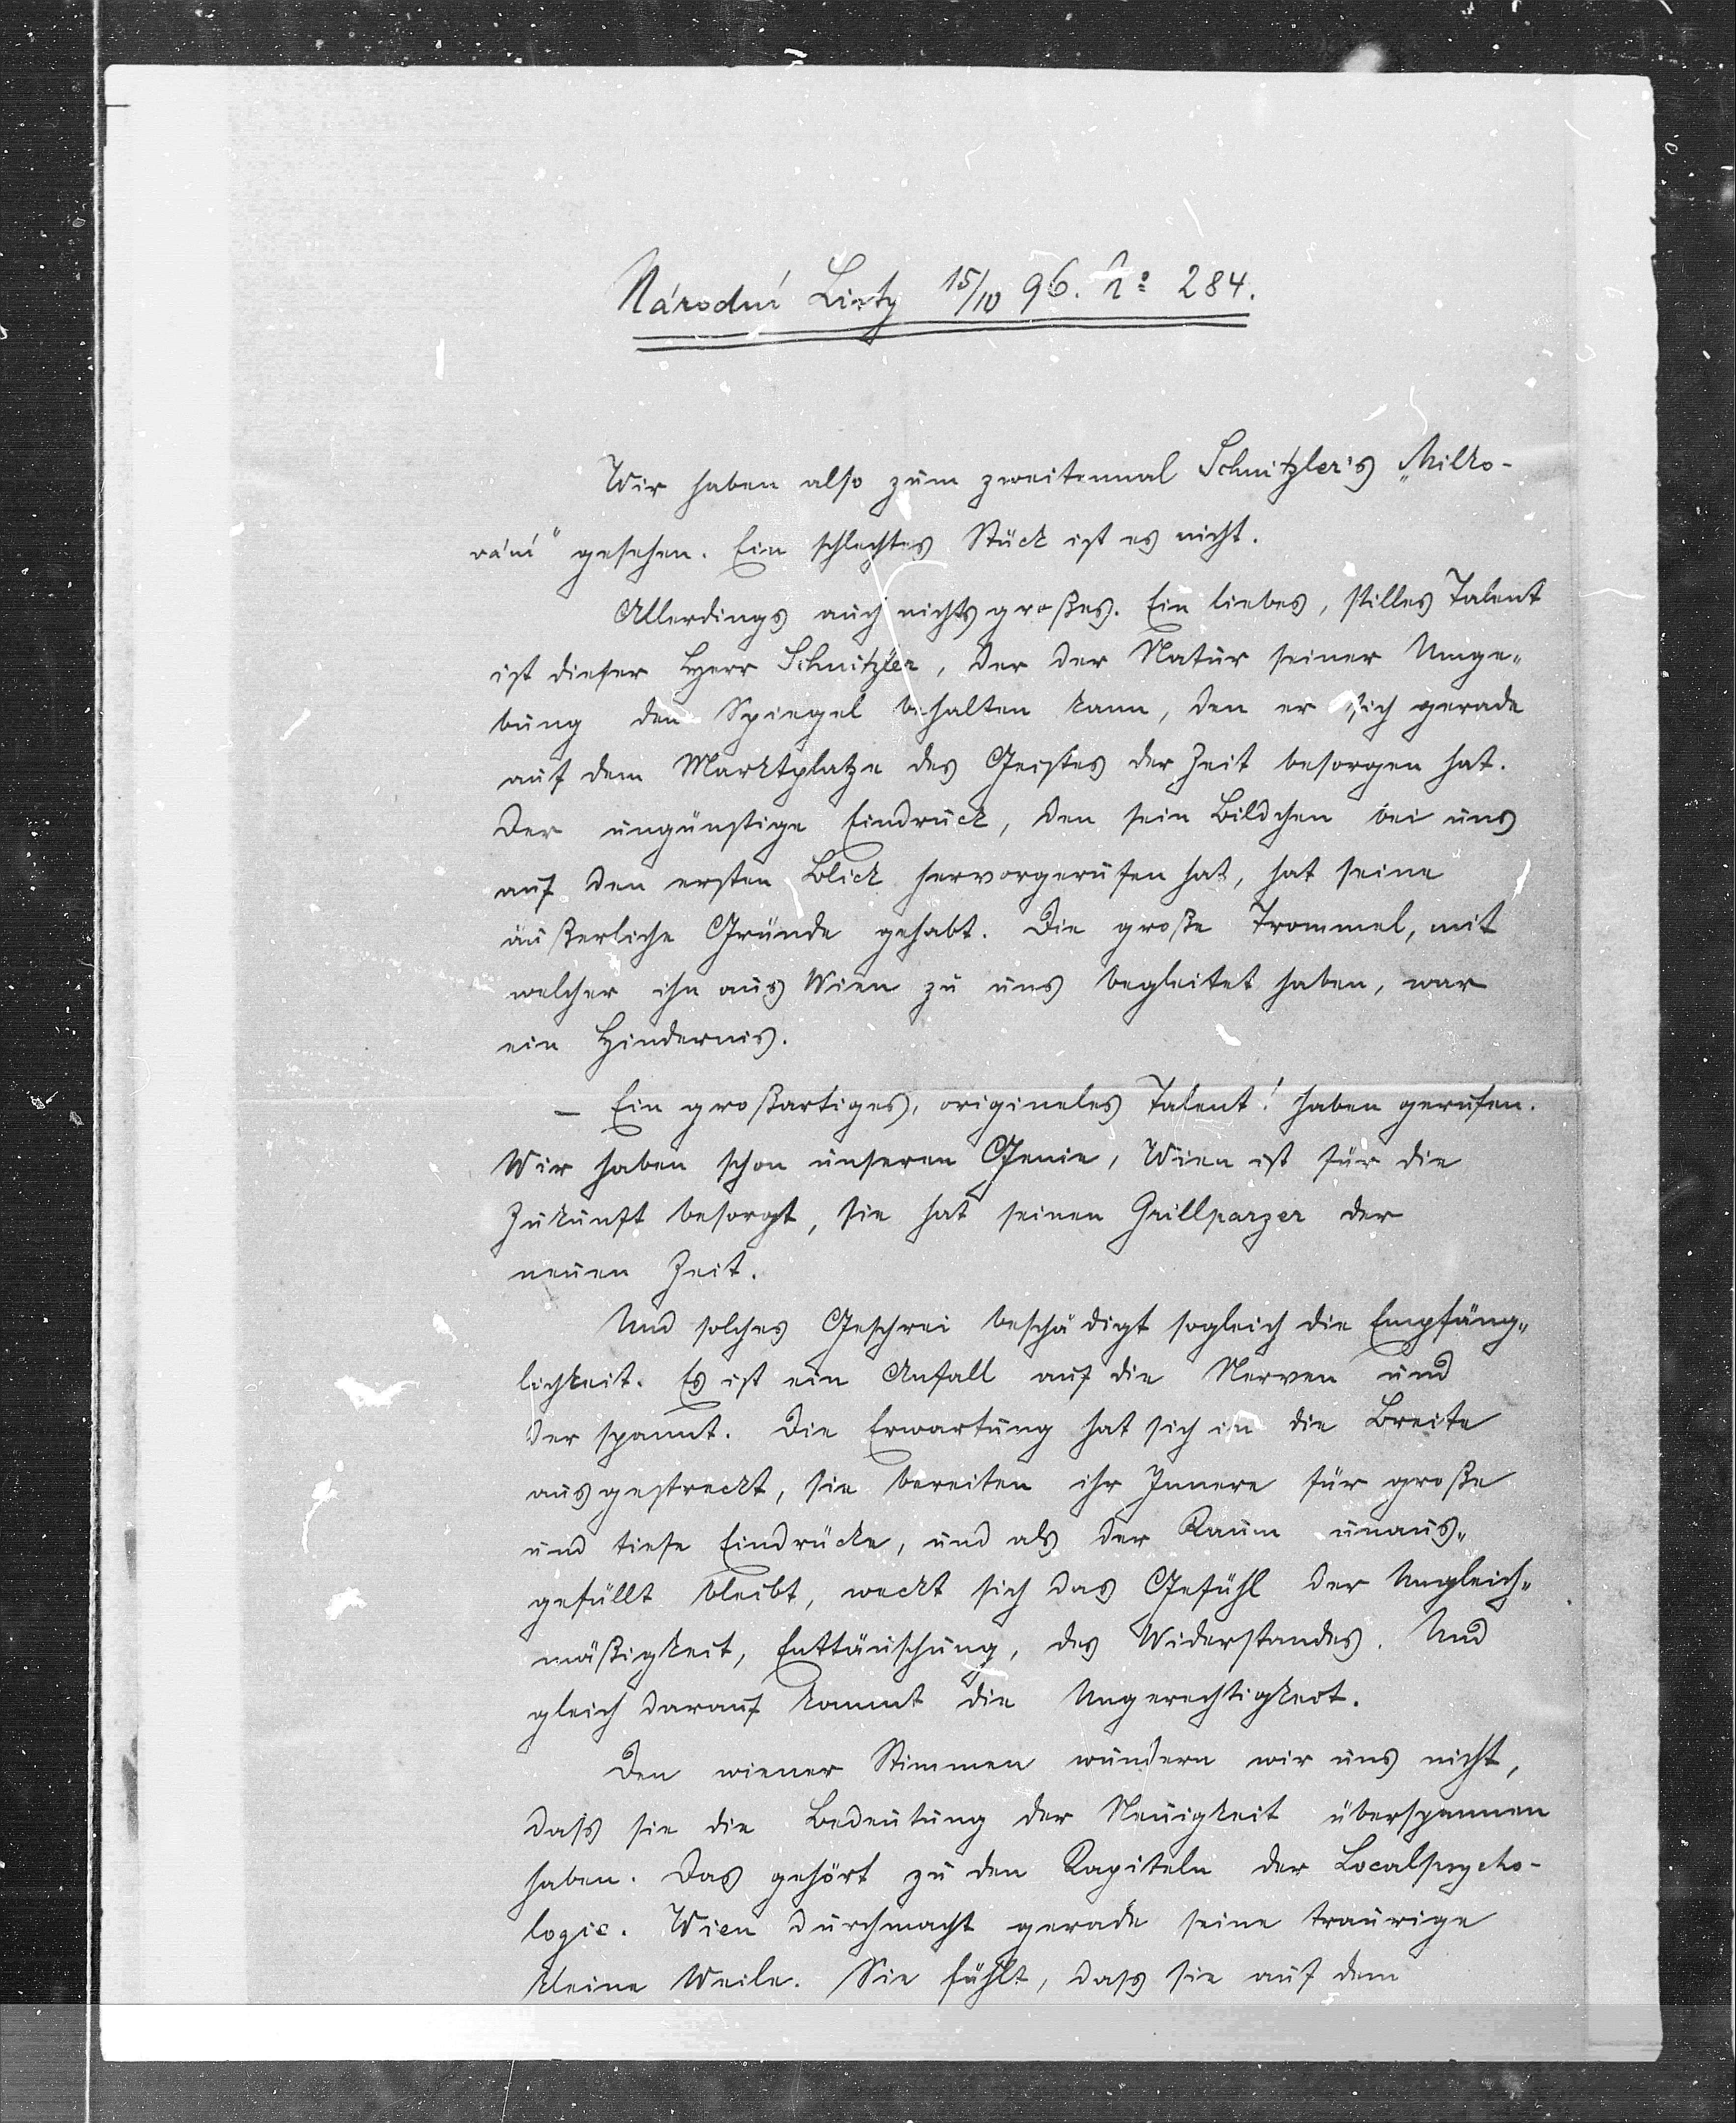 Národní Listy 15/10 96. No 284.
Wir haben also zum zweitenmal Schnitzler's „Milko-
vání" gesehen. Ein schlechtes Stück ist es nicht.
Allerdings auch nichts großes. Ein liebes, stilles Talent
ist dieser Herr Schnitzler, der der Natur seiner Umge-
bung den Spiegel behalten kann, den er sich gerade
auf dem Marktplatze des Geistes der Zeit besorgen hat.
Der ungünstige Eindruck, den sein Bildchen bei uns
auf den ersten Blick hervorgerufen hat, hat seine
äußerliche Gründe gehabt. Die große Trommel, mit
welcher ihn aus Wien zu uns begleitet haben, war
ein Hindernis.
– Ein großartiges, origineles Talent! haben gerufen.
Wir haben schon unseren Genie, Wien ist für die
Zukunft besorgt, sie hat seinen Grillparzer der
neuen Zeit.
Und solches Geschrei beschädigt sogleich die Empfäng-
lichkeit. Es ist ein Anfall auf die Nerven und
der spannt. Die Erwartung hat sich in die Breite
ausgestreckt, sie bereiten ihr Innere für große
und tiefe Eindrücke, und als der Raum unaus-
gefüllt bleibt, weckt sich das Gefühl der Ungleich-
mäßigkeit, Enttäuschung, des Widerstandes. Und
gleich darauf kommt die Ungerechtigkeit.
Den wiener Stimmen wundern wir uns nicht,
dass sie die Bedeutung der Neuigkeit überspannen
haben. Das gehört zu den Kapiteln der Localpsycho-
logie. Wien durchmacht gerade seine traurige
kleine Weile. Sie fühlt, dass sie auf dem